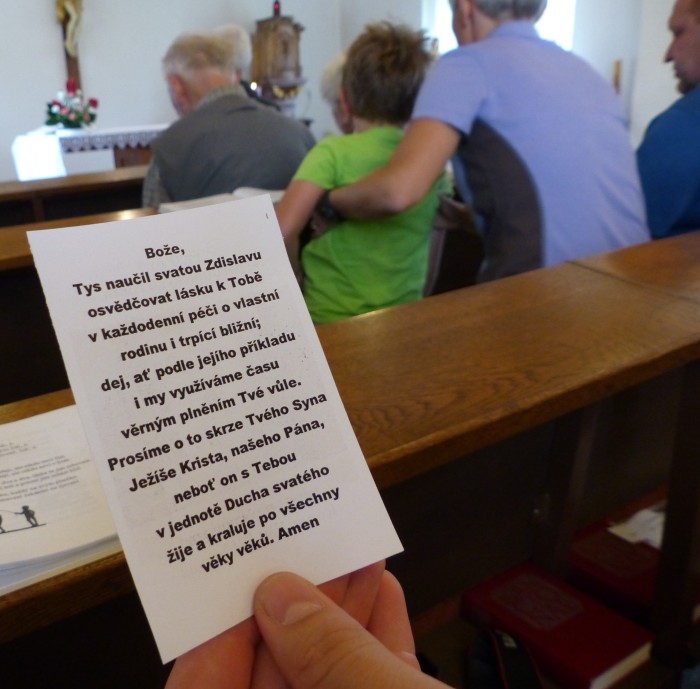 Bože,
Tys naučil svatou Zdislavu
osvědčovat lásku k Tobě
v každodenní péči o vlastní
rodinu i trpící bližní;
dej, ať podle jejího příkladu
i my využíváme času
věrným plněním Tvé vůle.
Prosíme o to skrze Tvého Syna
Ježíše Krista, našeho Pána,
neboť on s Tebou
v jednotě Ducha svatého
žije a kraluje po všechny
věky věků. Amen